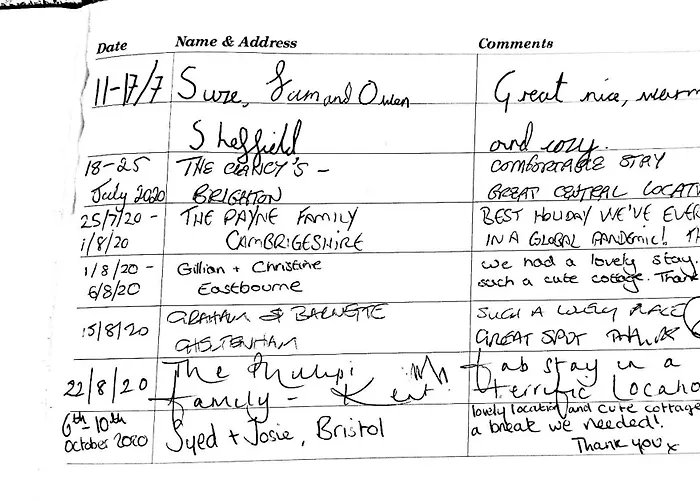 Date Name & Address Comments
11-17/7 Suze, Sam and Owen Great nice, warm
Sheffield and cozy.
18-25 THE CLANCY'S - COMFORTABLE STAY
July 2020 BRIGHTON GREAT CENTRAL LOCATI
25/7/20 - THE PAYNE FAMILY BEST HOLIDAY WE'VE EVER
1/8/20 CAMBRIGESHIRE IN A GLOBAL PANDEMIC! TH
1/8/20 - Gillian + Christine we had a lovely stay.
6/8/20 Eastbourne such a cute cottage. Thank
15/8/20 GRAHAM & SUCH A LOVELY PLACE
CHELTENHAM GREAT SPOT THANK
The fab stay in a
22/8/20 Family - Kent terrific locatio
6th-10th lovely location and cute cottage
October 2020 Syed + Josie, Bristol a break we needed!
Thank you x